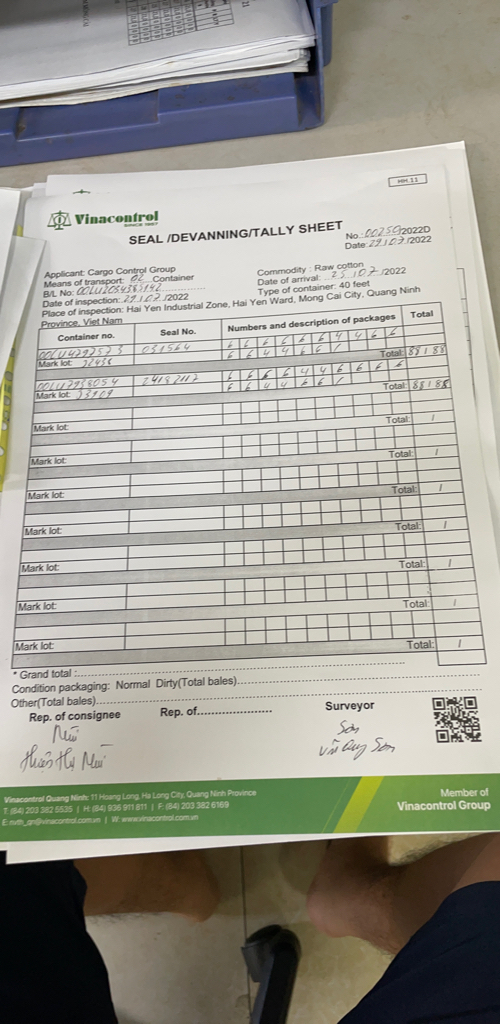 HH.11
Vinacontrol
SINCE 1957
SEAL /DEVANNING/TALLY SHEET
No.:00250/2022D
Date:29/07/2022
Applicant: Cargo Control Group
Commodity : Raw cotton
Means of transport: 02 Container
Date of arrival: 25/07/2022
B/L No:
Type of container: 40 feet
Date of inspection: 29/07/2022
Place of inspection: Hai Yen Industrial Zone, Hai Yen Ward, Mong Cai City, Quang Ninh
Province, Viet Nam
Container no. Seal No. Numbers and description of packages Total
031564 6 6 6 6 6 6 4 4 6 6
Mark lot: 6 6 4 4 6 6 / Total: 88/88
6 6 6 6 4 4 6 6 6 6
Mark lot: 6 6 4 4 6 6 / Total: 88/88
Mark lot: Total: /
Mark lot: Total: /
Mark lot: Total: /
Mark lot: Total: /
Mark lot: Total: /
Mark lot: Total: /
Mark lot: Total: /
* Grand total :
Condition packaging: Normal Dirty(Total bales)
Other(Total bales)
Rep. of consignee Rep. of Surveyor
Sơn
Vũ Duy Sơn
Vinacontrol Quang Ninh: 11 Hoang Long, Ha Long City, Quang Ninh Province
T: (84) 203 382 5535 | H: (84) 936 911 811 | F: (84) 203 382 6169
E: nvth_qn@vinacontrol.com.vn | W: www.vinacontrol.com.vn
Member of
Vinacontrol Group